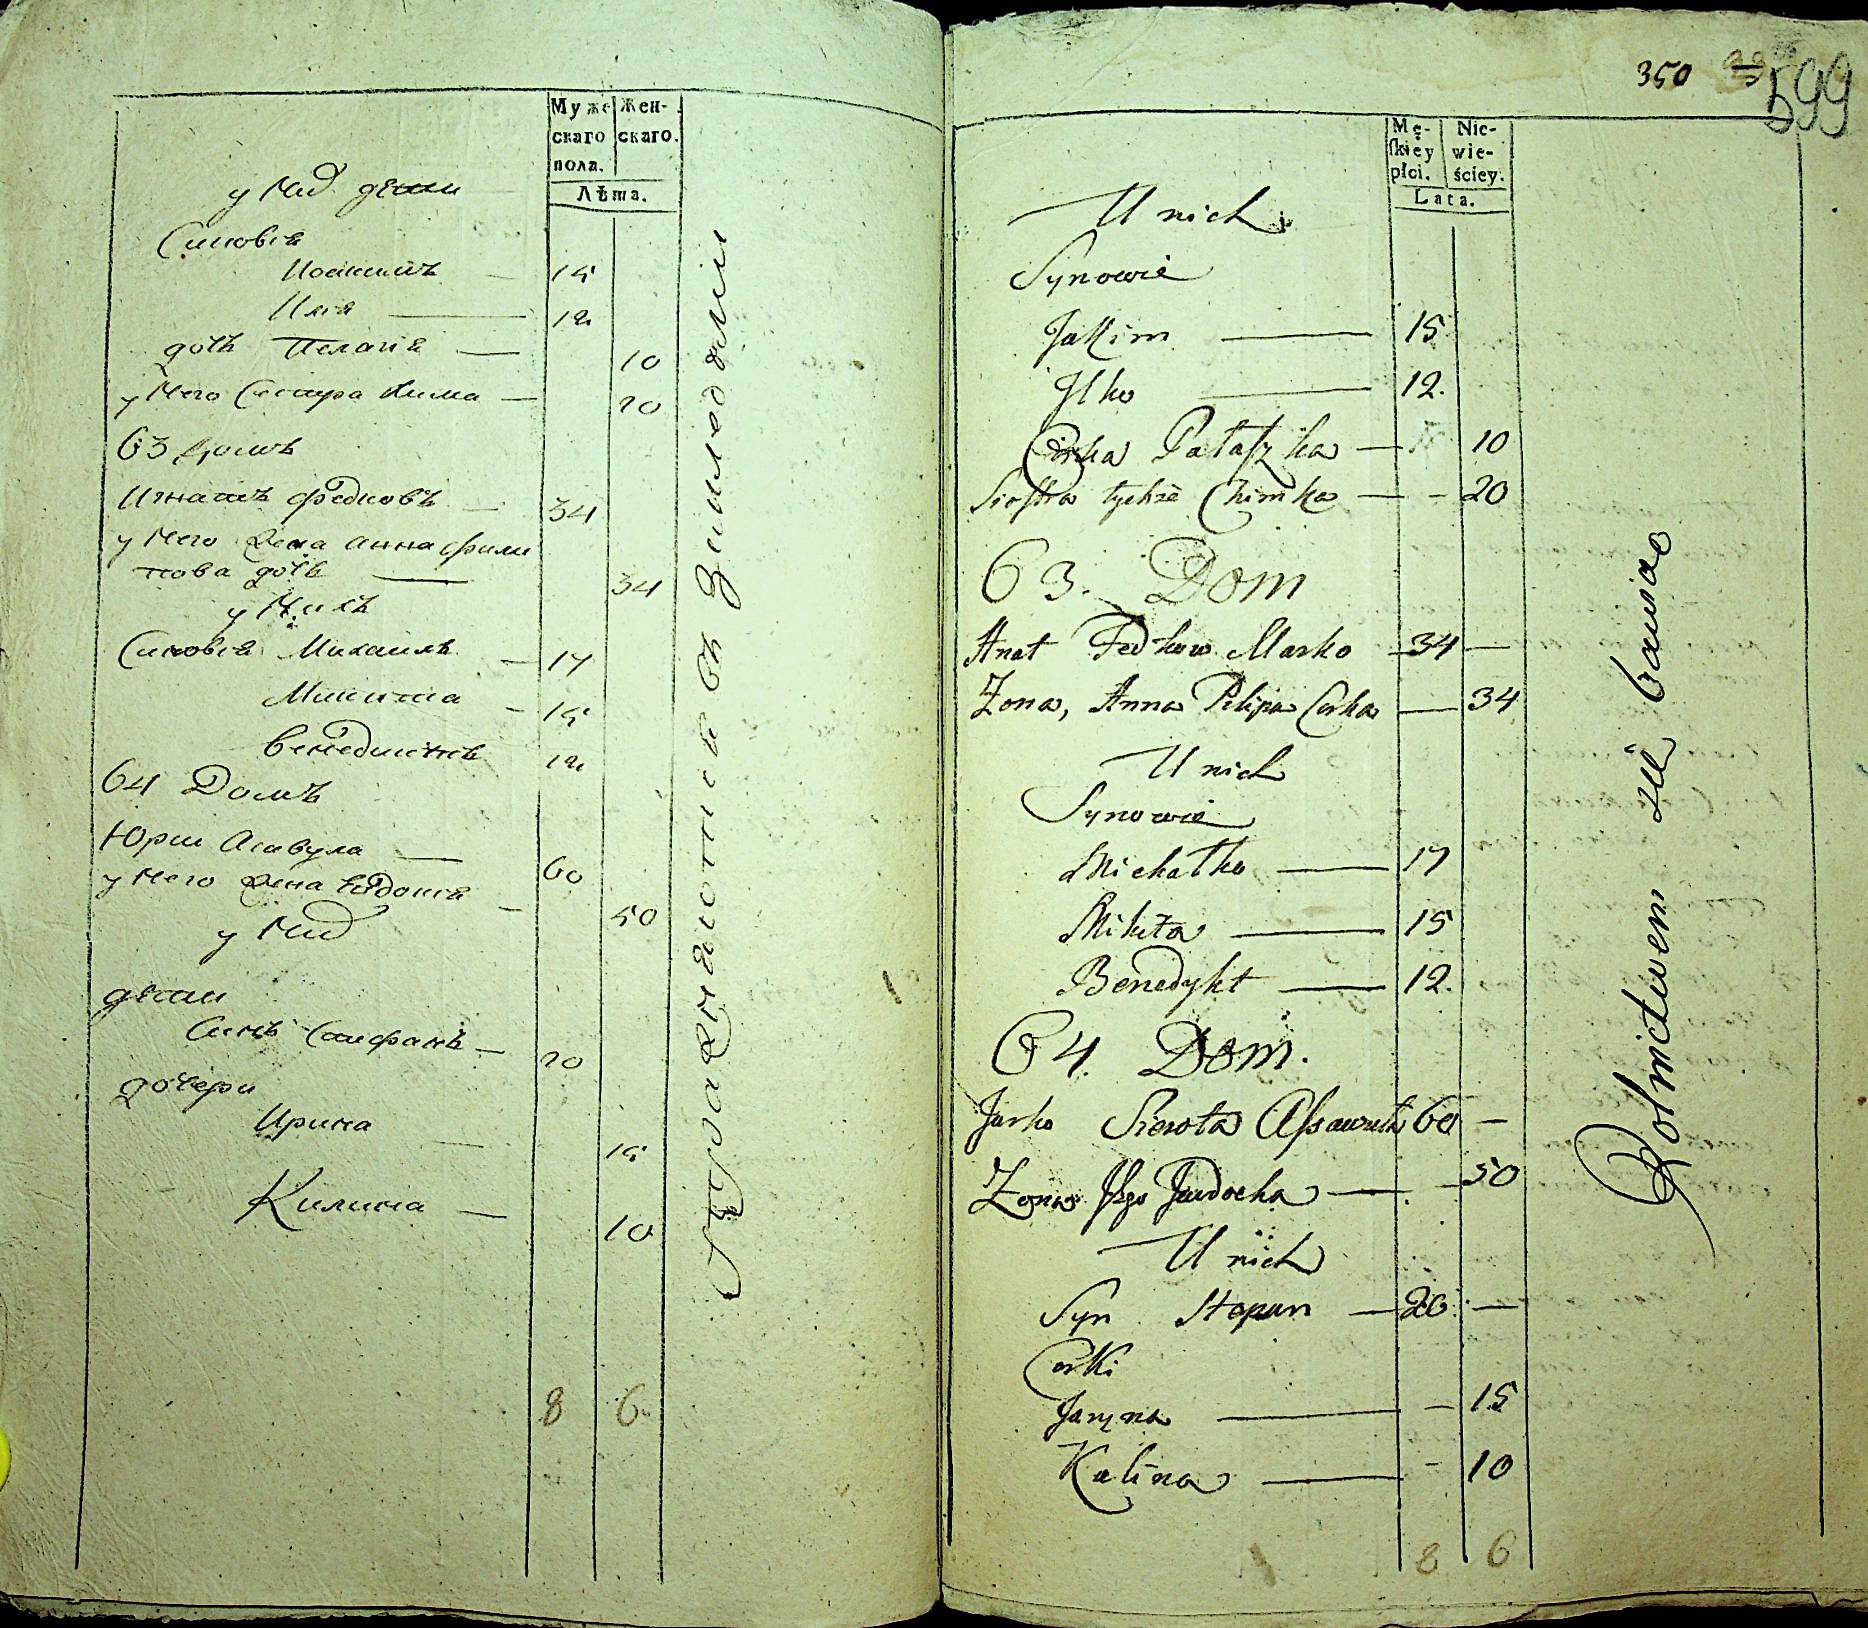 Муже
скаго
пола.
Жен-
скаго.
Лѣта.
у Них дети
Синовія
Иоакимъ — 15
Илія — 12
дочь Пелагія — 10
у Него Сестра Хима — 20
63 домъ
Игнатъ Федковъ — 34
у Него жена Анна Фили
пова дочь — 34
у Нихъ
Синовія Михаилъ — 17
Микита — 15
Венедиктъ 12
64 Домъ
Юрии Асавула — 60
у Него жена Евдокія — 50
у Них
дети
Синъ Стефанъ — 20
дочери
Ирина — 15
Килина — 10
8 6
350
599
Mę-
skiey
płci.
Nie-
wie-
ściey.
Lata.
U nich
Synowie
Jakim — 15
Ilko — 12.
Corka Palaszka — 10
Siostra tychże Chimka — - 20
63. Dom
Anat Fedkow Marko 34 —
Żona, Anna Pilipa Corka — 34
U nich
Synowie
Michałko — 17
Mikita — 15
Benedykt — 12.
64. Dom.
Jurko Sierota Assawuła 60 —
Żona Jego Jewdocha — - 50
U nich
Syn Stepan — 20 —
Corki
Jaryna — - 15
Kalina — - 10
8 6
Rolnictwem się bawiąo